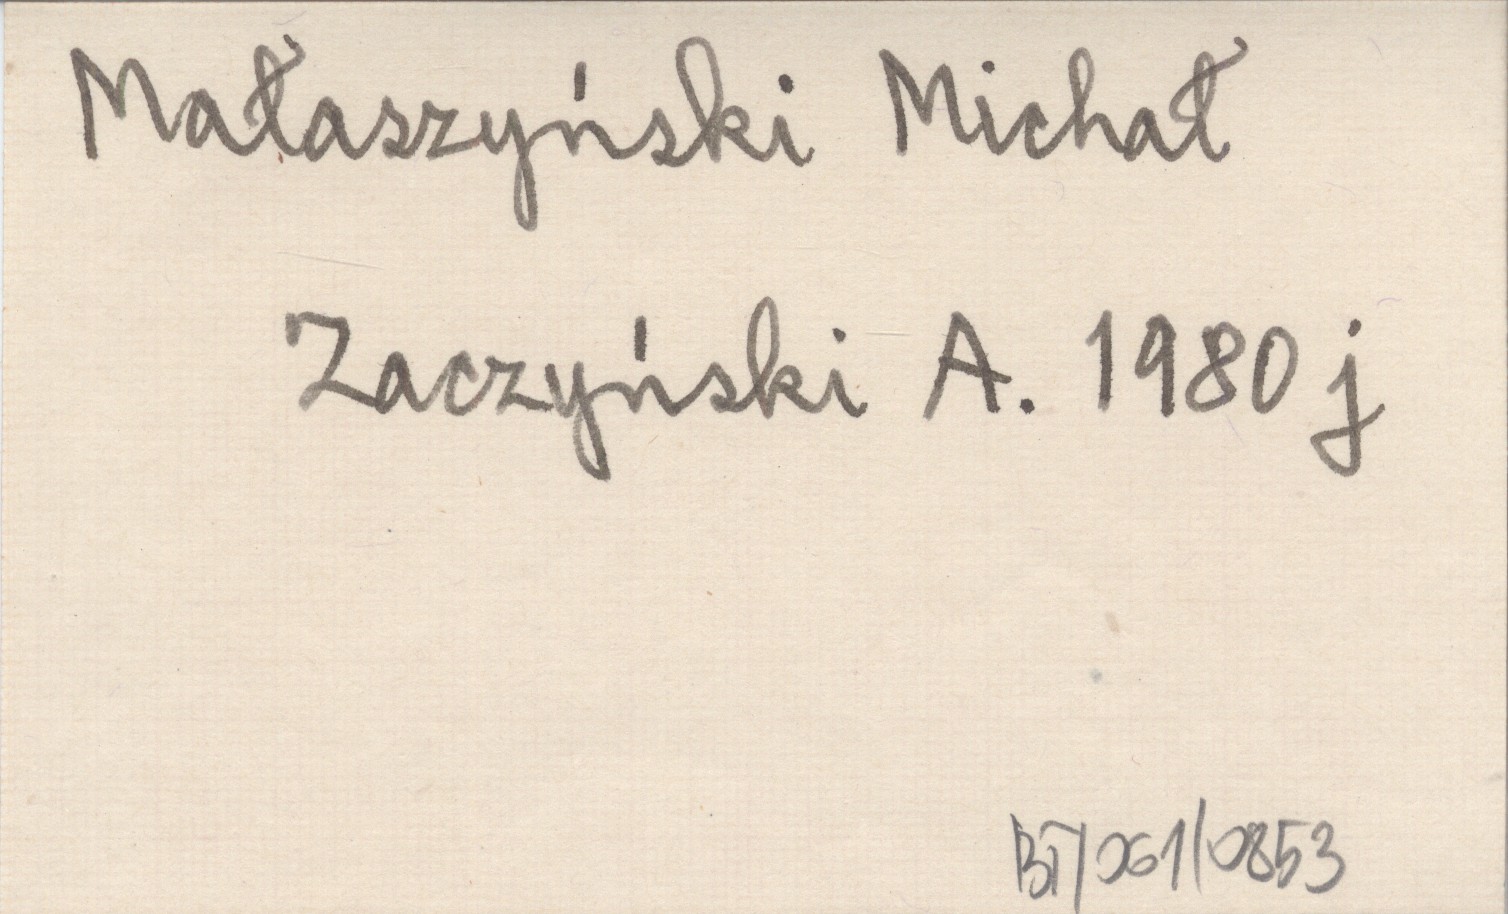 Małaszyński Michał
Zaczyński A. 1980 j
BI/061/0853